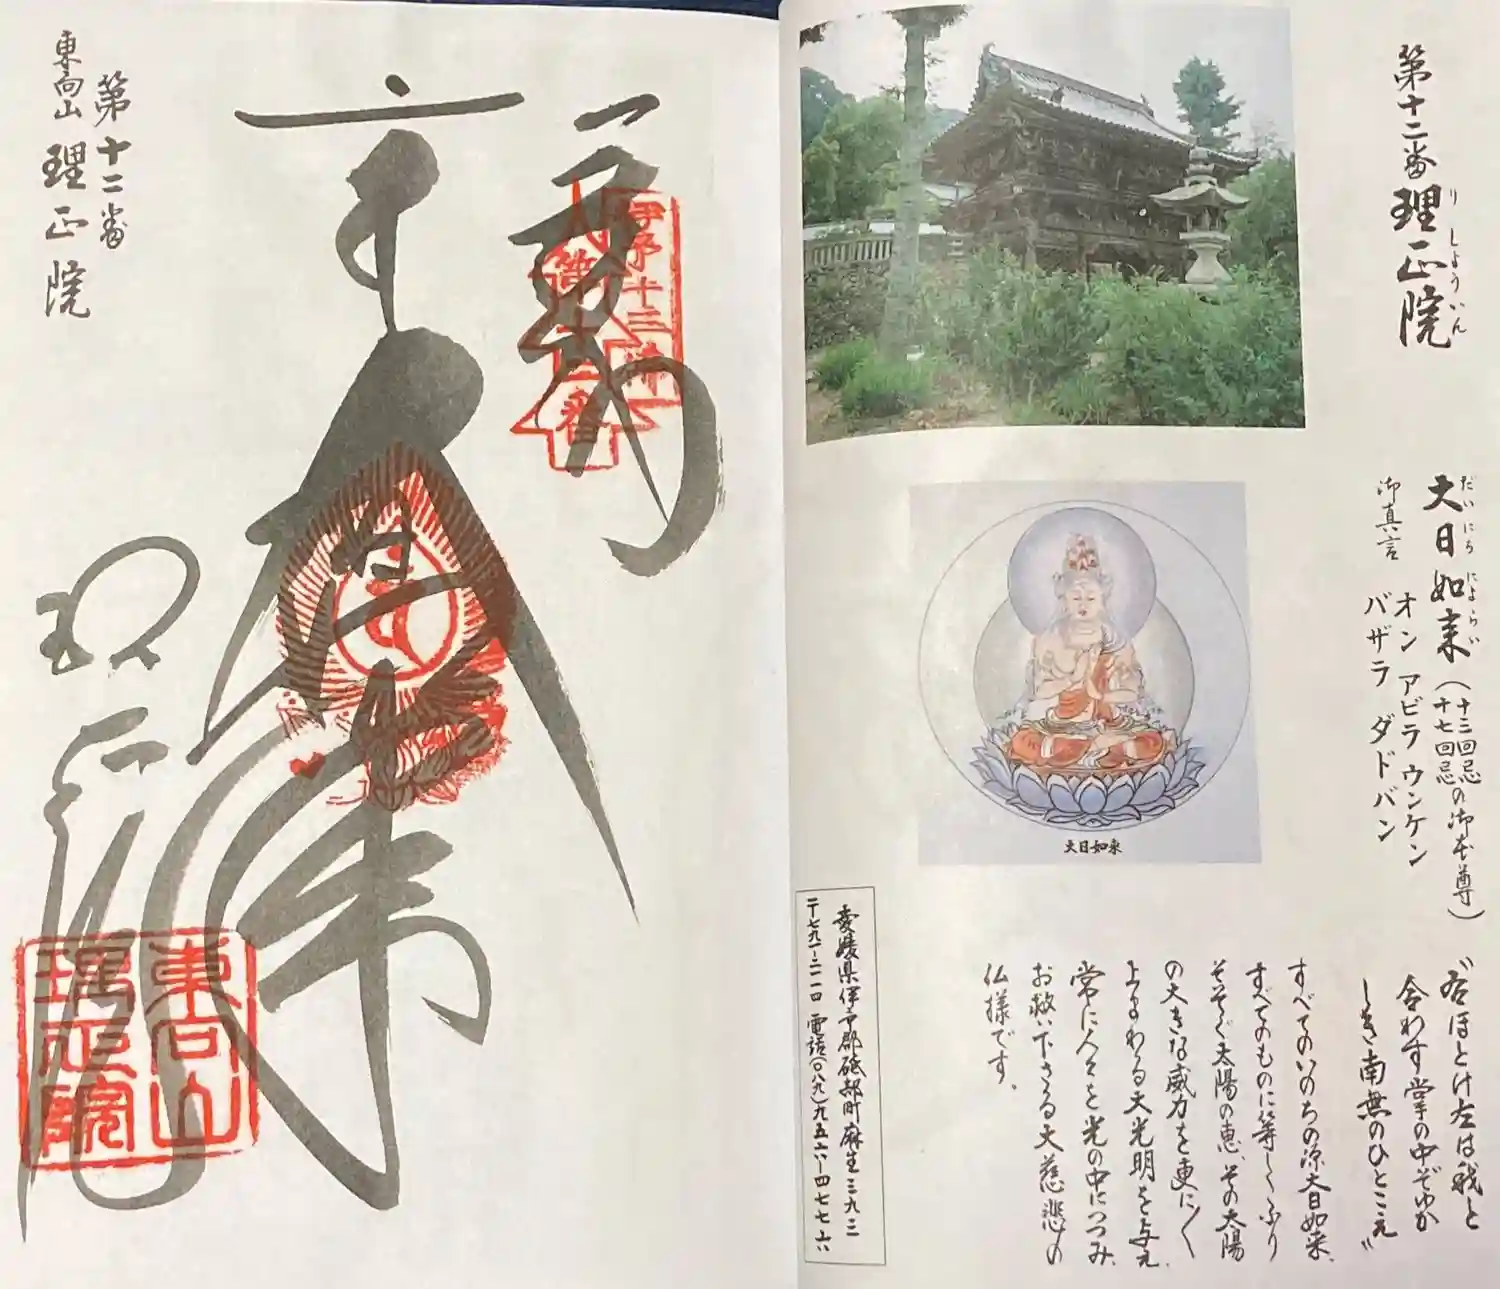 第十二番 理正院
りしょういん
大日如来(十三回忌
十七回忌の御本尊)
だいにちにょらい
御真言 オン アビラ ウンケン
バザラ ダドバン
大日如来
〝右ほとけ左は我と
合わす掌の中ぞゆか
しき南無のひとこえ〟
すべてのいのちの源大日如来、
すべてのものに等しくふり
そそぐ太陽の恵、その太陽
の大きな威力を更に〳〵
上まわる大光明を与え、
常に人々を光の中につつみ、
お救い下さる大慈悲の
仏様です。
愛媛県伊予郡砥部町麻生三九三
〒七九一-二一一四 電話(〇八九)九五六-四七七六
奉納
伊予十三佛
第十二番
大日如来
理正院
東向山
理正院
第十二番
東向山 理正院